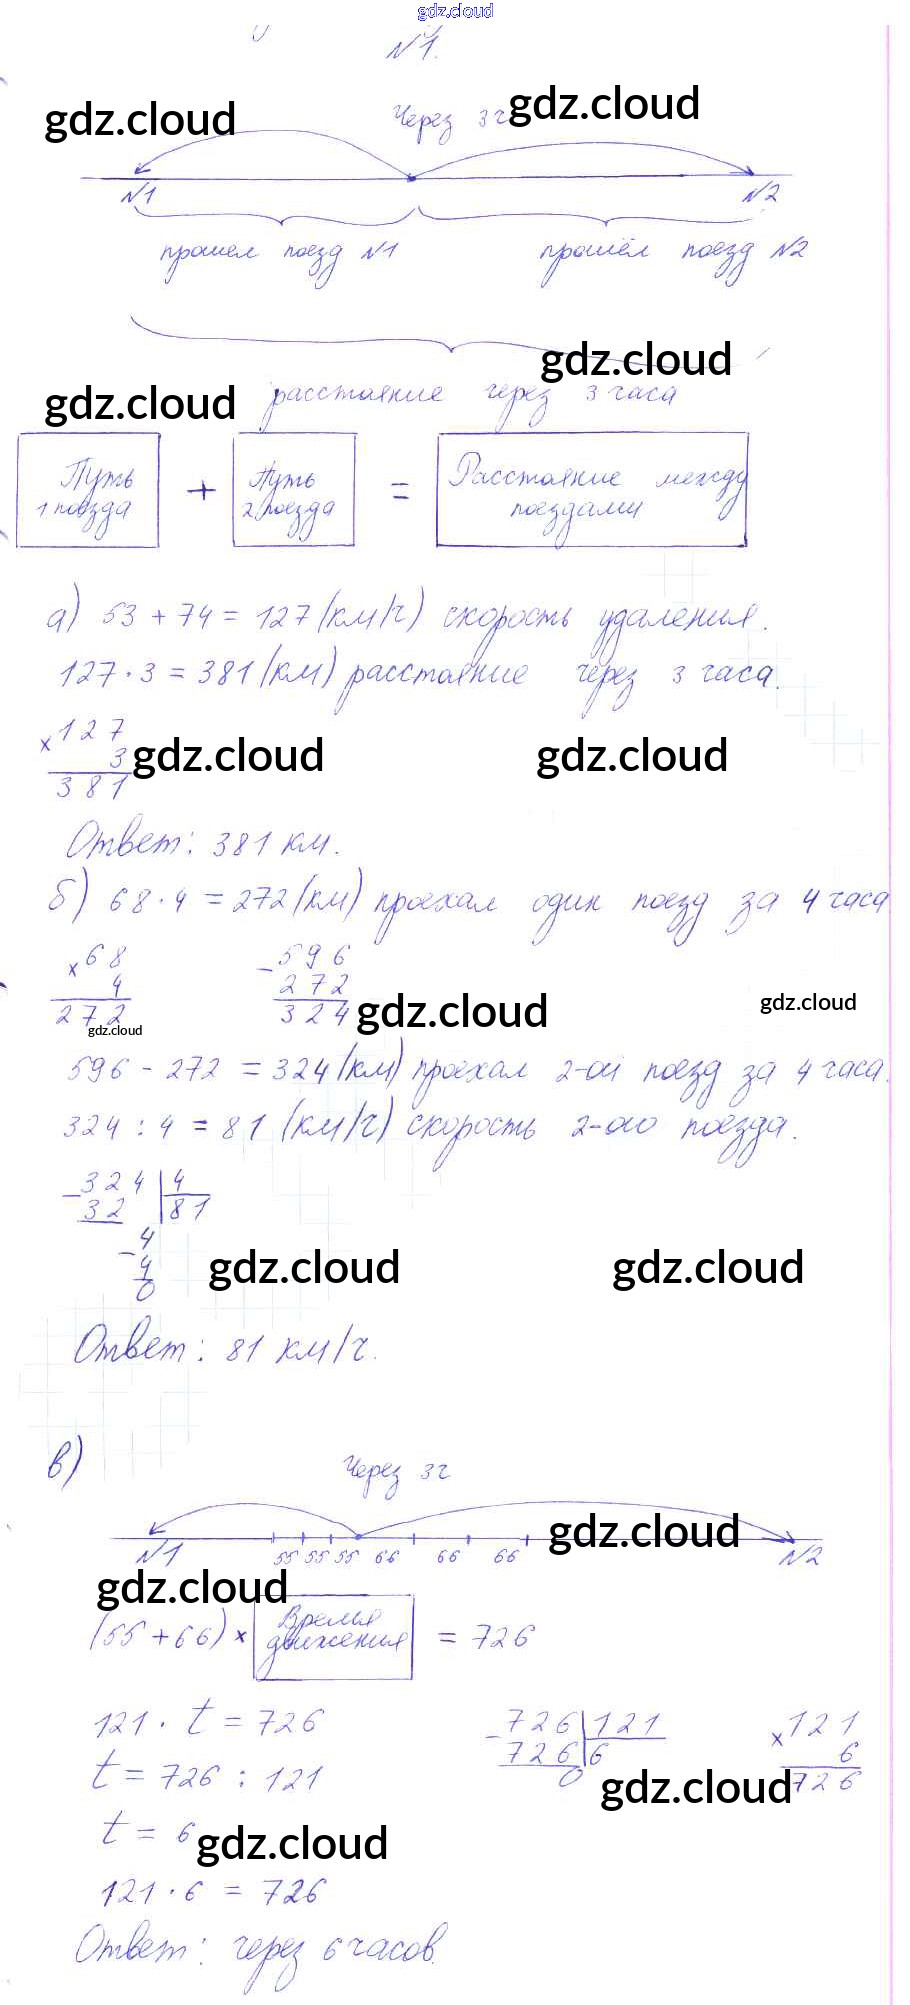 gdz.cloud
№1.
gdz.cloud
Через 3ч gdz.cloud
№1 №2
прошёл поезд №1 прошёл поезд №2
gdz.cloud
gdz.cloud
расстояние через 3 часа
Путь 1 поезда + Путь 2 поезда = Расстояние между поездами
а) 53 + 74 = 127 (км/ч) скорость удаления.
127 · 3 = 381 (км) расстояние через 3 часа.
× 127
3
381
gdz.cloud gdz.cloud
Ответ: 381 км.
б) 68 · 4 = 272 (км) проехал один поезд за 4 часа
× 68 − 596
4 272
272 324
gdz.cloud gdz.cloud gdz.cloud
596 − 272 = 324 (км) проехал 2-ой поезд за 4 часа.
324 : 4 = 81 (км/ч) скорость 2-ого поезда.
− 324 | 4
32 | 81
− 4
4
0
gdz.cloud gdz.cloud
Ответ: 81 км/ч.
в)
Через 3ч
gdz.cloud
№1 55 55 55 66 66 66 №2
gdz.cloud
(55 + 66) × Время движения = 726
121 · t = 726 − 726 | 121 × 121
t = 726 : 121 726 | 6 6
0 726
gdz.cloud
t = 6 gdz.cloud
121 · 6 = 726
Ответ: через 6 часов.